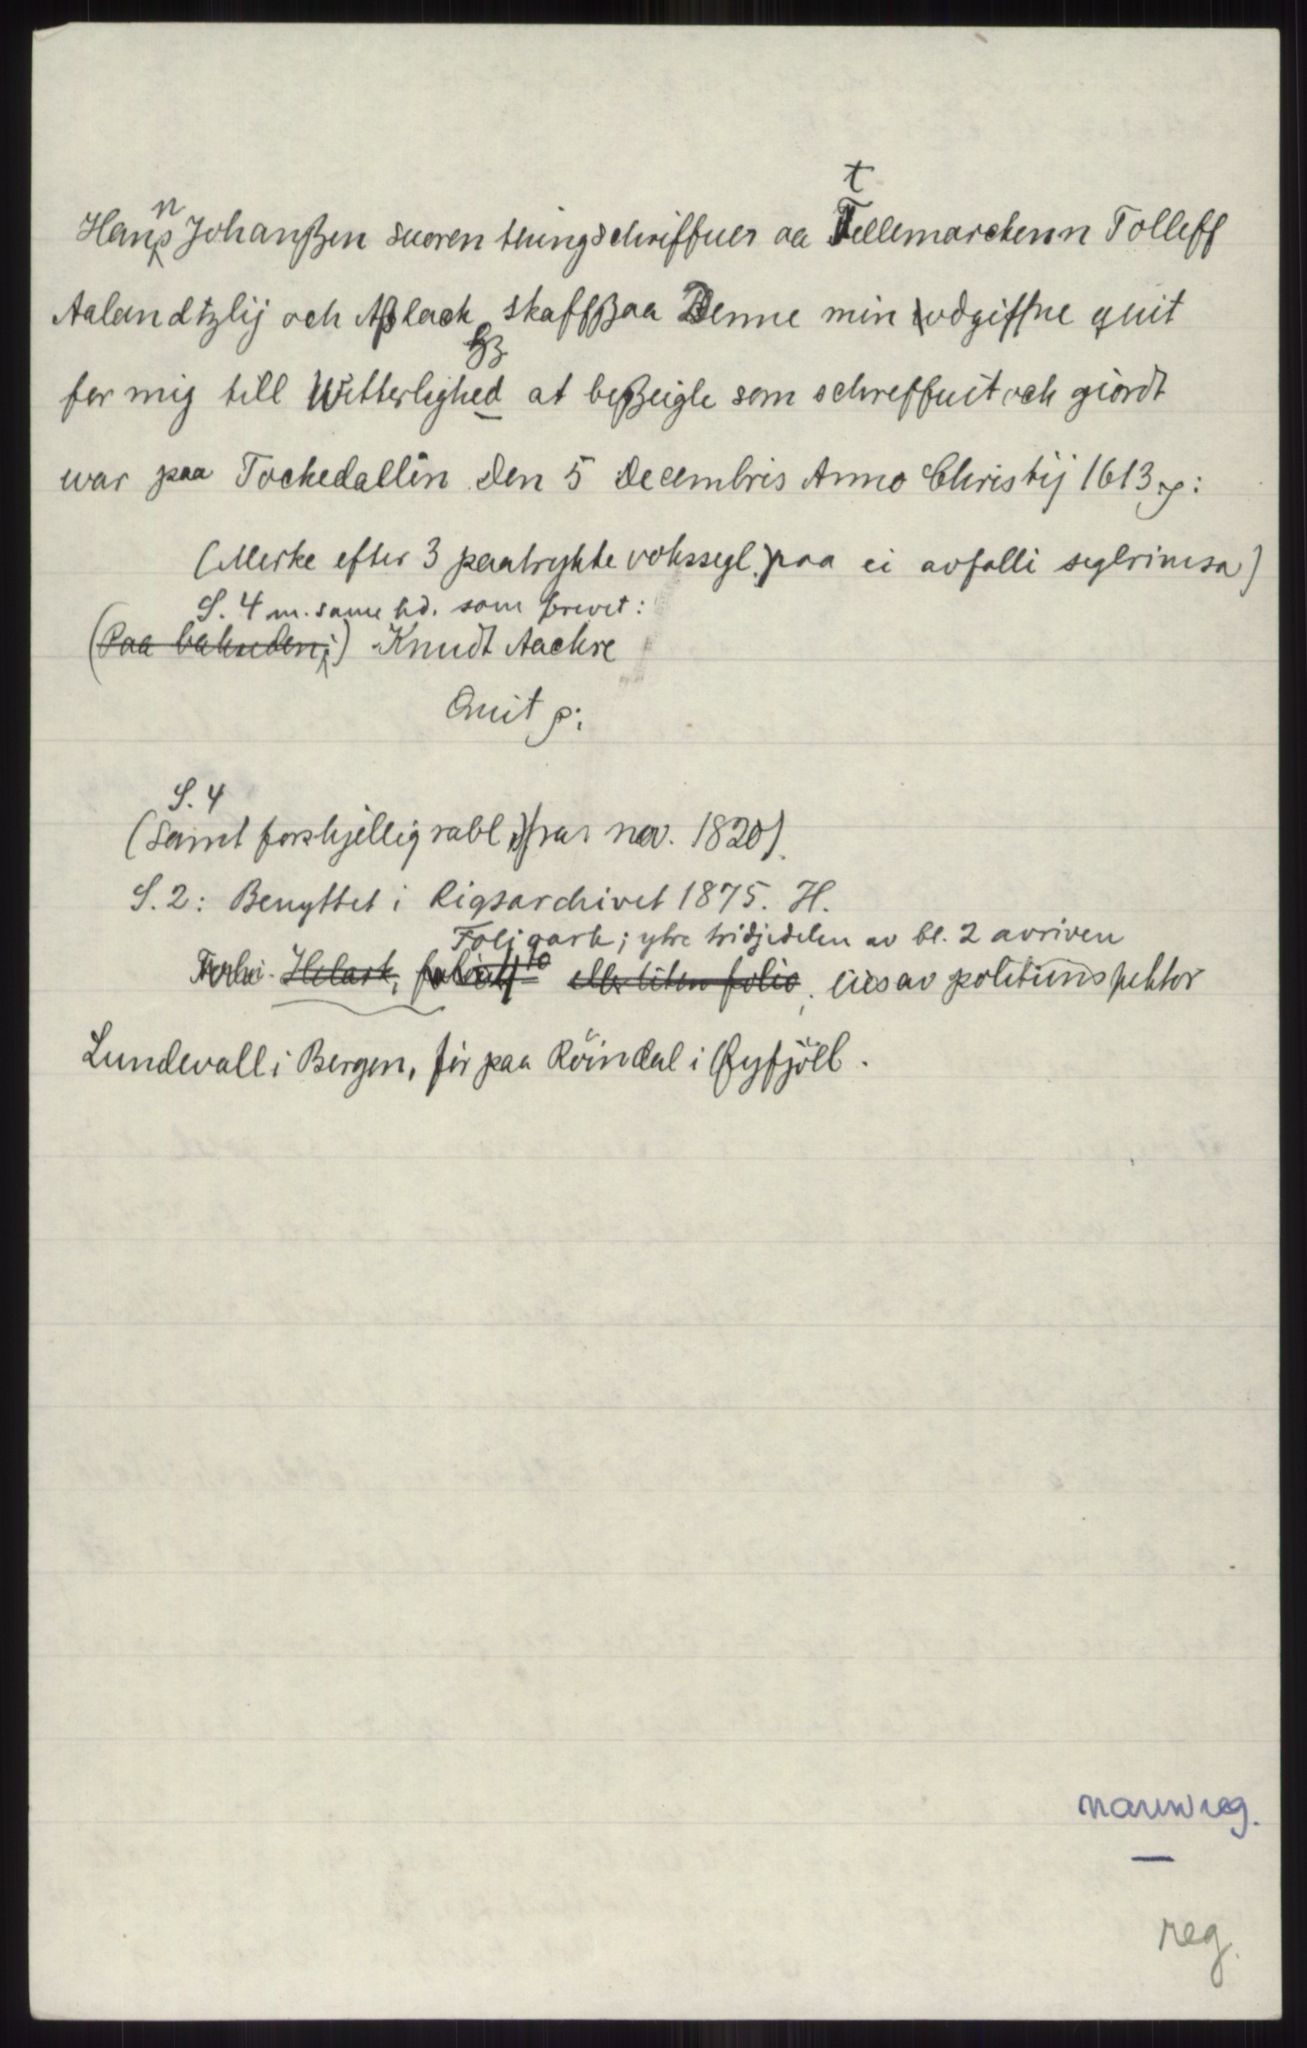 t
Hanns Johanßen suoren tingschriffuer aa Tellemarckenn Tolleff
Aalandtzlij och Aßlack skaffßaa Denne min vdgiffne quit
for mig till Witterlighed at beßeigle som schreffuit och giordt
war paa Tockedallen Den 5 Decembris Anno Christij 1613 p:
(Merke efter 3 paatrykte vokssegl. paa ei avfalli seglrimsa)
S. 4 m. same hd. som brevet:
(Paa baksiden:) Knudt Aackre
Quit p:
S. 4
(Samt forskjellig rabl, fraa nov. 1820)
S. 2: Benyttet i Rigsarchivet 1875. H.
Folioark; ytre tridjedelen av bl. 2 avriven
Helark, eller liten folio, av politiinspektor
Lundevall i Bergen, før paa Röindal i Øyfjöll.
namnreg.
reg.